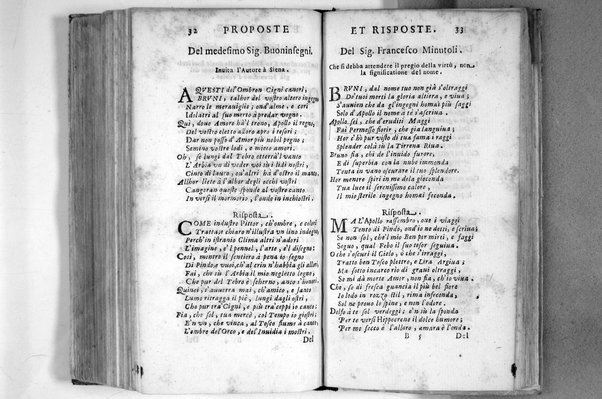 32 PROPOSTE
Del medesimo Sig. Buoninsegni.
Invita l'Autore à Siena.
A QUESTI d'Ombron Cigni canori,
BRUNI, talhor del vostro altero ingegno
Narro le meraviglie; ond'alme, e cori
Idolatri al suo merto à predar vegno.
Qui, dove Amor hà'l trono, Apollo il regno,
Del vostro eletto alloro apro i tesori;
Dar non posso d'Amor più nobil pegno;
Semino vostre lodi, e mieto amori.
Oh, se lungi dal Tebro otterrà'l vanto
L'Arbia un dì veder voi tra i lidi nostri,
Cinto di lauro, cui altri hà d'ostro il manto,
Allhor lieto à l'albor degli occhi vostri
Cangeran queste sponde al vostro canto
In versi il mormorio, l'onde in inchiostri.
Risposta.
COME industre Pittor, ch'ombre, e colori
Tratta, e chiaro n'illustra un lino indegno,
Perch'in istranio Clima altri n'adori
L'imagino, e'l pennel, l'arte, e'l disegno:
Così, mentre il sentiero à pena io segno
Di Pindo,
Fai, che sù l'Arbia il mio negletto legno,
Che pur del Tebro è scherno, anco s'honori.
Quinci, s'auuerrà mai, ch'amico, e santo
Lume ritragga il piè, lungi dagli ostri,
Che pur trà Cigni, e più trà ceppi io canto;
Fia, che sol, tua mercè, col Tempo io giostri;
E'n vn, che vinca, al Tosco fiume à canto,
L'ombre del'Oreo, e del'Invidia i mostri.
Del
ET RISPOSTE. 33
Del Sig. Francesco Minutoli.
Che si debba attendere il pregio della virtù, non
la significatione del nome.
BRUNI, dal nome tuo non già s'oltraggi
De'tuoi merti la gloria altiera, e viva;
S'auuien che da gl'ingegni homai più saggi
Solo d'Apollo il nome à te s'ascriua.
Apollo sei, che d'eruditi Maggi
Fai Permesso fiorir, che già languiua;
Hor c'hò pur visto di tua fama i raggi
Splender colà in la Tirrena Riua.
Bruno sia, chi de l'inuidia furore,
E di superbia con la nube immonda
Tenta in vano oscurare il tuo splendore.
Hor mentre spiri in me dela gioconda
Tua luce il serenissimo calore,
Il mio sterile ingegno homai feconda.
Risposta.
MA L'Apollo rassembro, oue i viaggi
Tento di Pindo, ond'io ne detti, e scriua;
Se non sol, che'l mio Ben per mirti, e faggi
Seguo, qual Febo il suo tesor seguiua.
O che s'oscuri il Cielo, ò che s'irraggi,
Tratto ben Tosco plettro, e Lira Argiua;
Ma sotto incarco rio di graui oltraggi,
Se mi dà morte Amor, non fia, ch'io viua.
Che, se di fresca guancia il più bel fiore
Io lodo in rozzo stil, rima infeconda,
Sol ne prouo le spine, e non l'odore.
Delfo à te sol verdeggi; e'n sù la sponda
Per te versi Hippocrene il dolce humore;
Per me secco è l'alloro, amara è l'onda.
B 5 Del